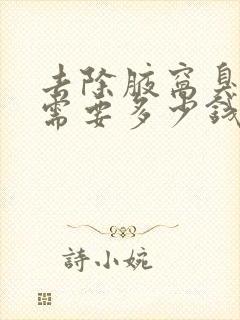 去除腋窝臭
需要多少钱
詩小婉